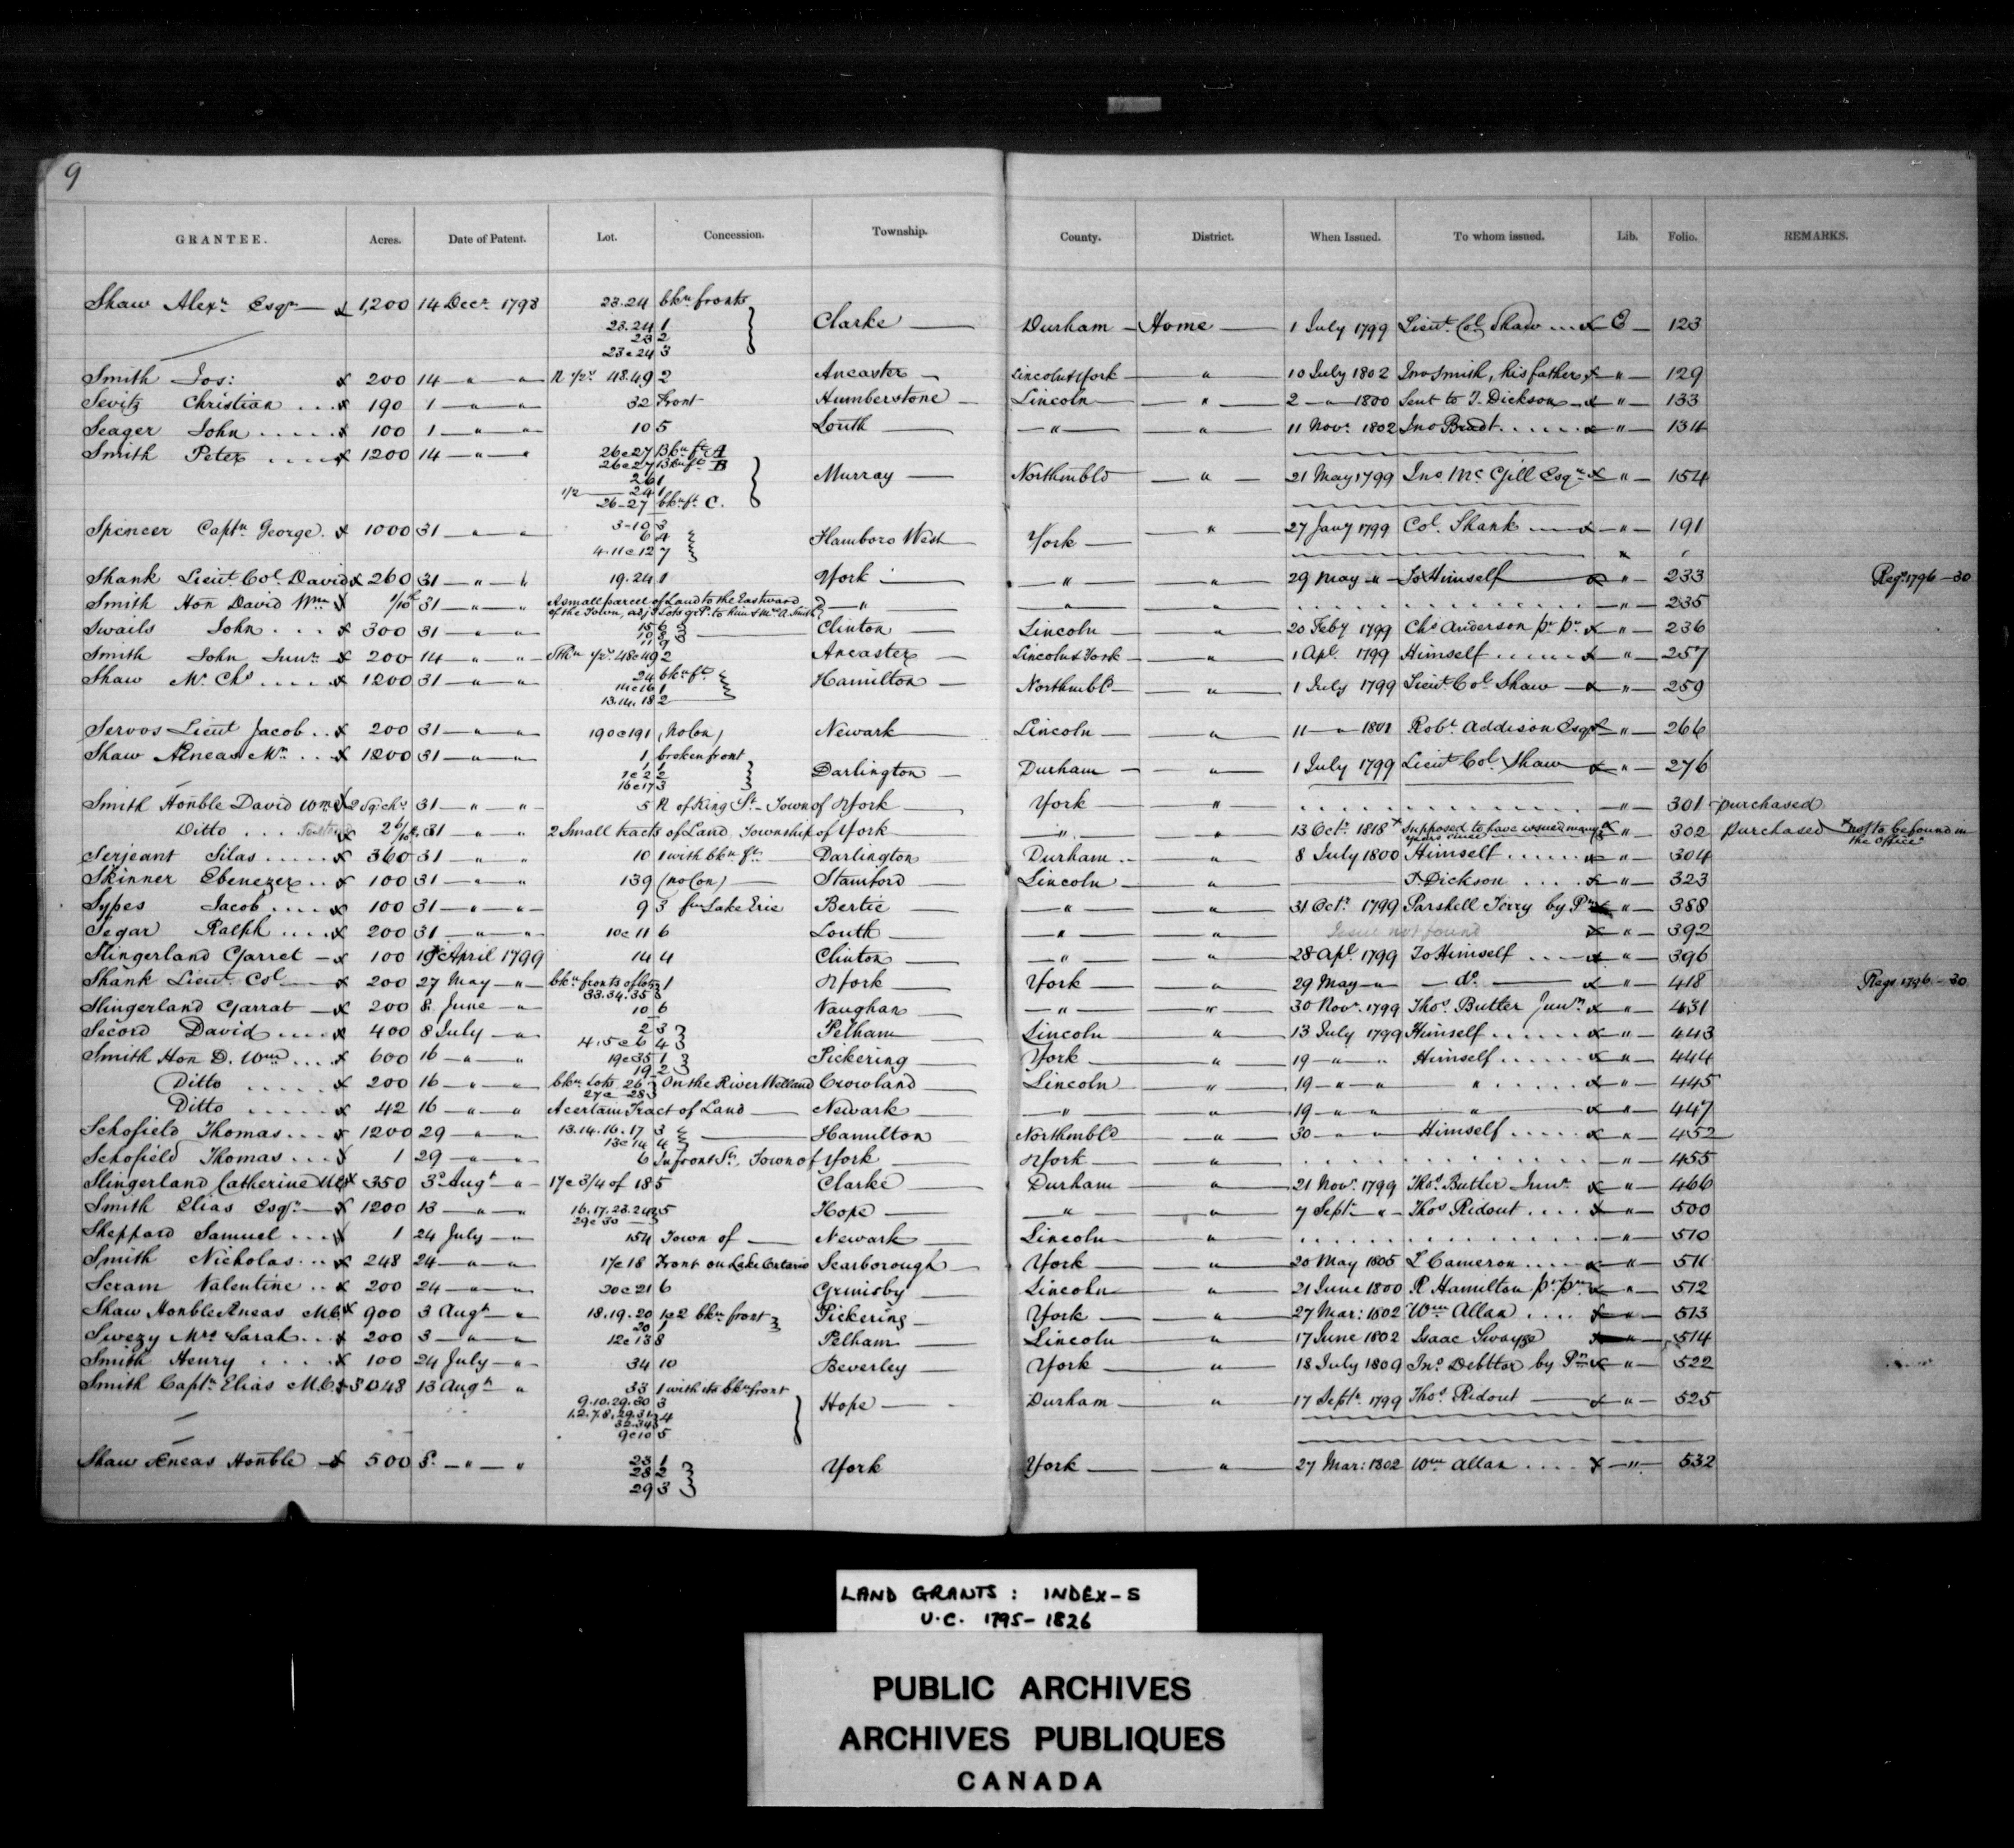 9
GRANTEE. Acres. Date of Patent. Lot. Concession. Township. County. District. When Issued. To whom issued. Lib. Folio. REMARKS.
Shaw Alexr Esqr — x 1,200 14 Decr 1798 23.24 bkn fronts
23.24 1 Clarke — Durham — Home — 1 July 1799 Lieut Col Shaw ... x E — 123
23 2
23 e 24 3
Smith Jos: x 200 14 — " — " N 1/2s 48.49 2 Ancaster — Lincoln & York — " — 10 July 1802 Jno Smith, his father x — " — 129
Sevitz Christian ... x 190 1 — " — " 32 Front Humberstone — Lincoln — " — 2 — " — 1800 Sent to T. Dickson — x — " — 133
Seager John ..... x 100 1 — " — " 10 5 Louth — — " — — " — 11 Novr 1802 Jno Bradt ..... x — " — 134
Smith Peter .... x 1200 14 — " — " 26 e 27 Bkn ft A
26 e 27 Bkn ft B
26 1 Murray — Northmbld — " — 21 May 1799 Jno McGill Esqr x — " — 154
1/2 — 24 1
26-27 bkn ft C.
Spencer Captn George. x 1000 31 — " — " 3-10 3
6 4 Flamboro West York — " — 27 Jany 1799 Col. Shank — x — " — 191
4.11 e 12 7
Shank Lieut Col David x 260 31 — " — " 19.24 1 York — — " — — " — 29 May — " — To Himself — x — " — 233 Regr 1796 — 30
Smith Hon David Wm x 31 — " — " A small parcel of Land to the Eastward — " — — " — — " — ..... — " — 235
of the Town, adjg Lots grd to him & Mrs A. Smith
Swails John ... x 300 31 — " — " 15 6 Clinton — Lincoln — " — 20 Feby 1799 Chs Anderson pr pr x — " — 236
10 8
11 9
Smith John Junr — x 200 14 — " — " Sthn 1/2s 48 e 49 2 Ancaster — Lincoln & York — " — 1 Apl 1799 Himself ..... x — " — 257
Shaw Mr Chs .... x 1200 31 — " — " 24 bkn ft
14 e 16 1 Hamilton — Northmbld — " — 1 July 1799 Lieut Col Shaw — x — " — 259
13.14.18 2
Servos Lieut Jacob .. x 200 31 — " — " 190 e 191 (No Con) Newark — Lincoln — " — 11 — " — 1801 Robt Addison Esqr x — " — 266
Shaw Æneas Mr ... x 1200 31 — " — " 1 broken front
1 1 Darlington — Durham — " — 1 July 1799 Lieut Col Shaw — x — " — 276
1 e 2 2
16 e 17 3
Smith Honble David Wm x 2 Sq. chs 31 — " — " 5 N of King St — Town of York — York — " — ..... — " — 301 purchased
Ditto ... x 31 — " — " 2 Small tracts of Land, Township of York — — " — — " — 13 Octr 1818 x Supposed to have issued many x — " — 302 purchased x not to be found in
years since the office
Serjeant Silas ..... x 360 31 — " — " 10 1 with bkn ft Darlington — Durham .. — " — 8 July 1800 Himself ..... x — " — 304
Skinner Ebenezer .. x 100 31 — " — " 139 (no Con) — Stamford — Lincoln — " — — T. Dickson .... x — " — 323
Sypes Jacob .... x 100 31 — " — " 9 3 fm Lake Erie Bertie — — " — — " — 31 Octr 1799 Parshell Terry by Pr — " — 388
Segar Ralph .... x 200 31 — " — " 10 e 11 6 Louth — — " — — " — Issue not found x — " — 392
Slingerland Garret — x 100 10 April 1799 14 4 Clinton — — " — — " — 28 Apl 1799 To Himself .... x — " — 396
Shank Lieut Col — x 200 27 May — " bkn fronts of lots 1 York — York — " — 29 May — " — do — x — " — 418 Regr 1796 — 30
33.34.35
Slingerland Garrat — x 200 8 June — " 10 6 Vaughan — — " — — " — 30 Novr 1799 Thos Butler Junr x — " — 431
Secord David .... x 400 8 July — " 2 3 Pelham — Lincoln — " — 13 July 1799 Himself ..... x — " — 443
4.5 e 6 4
Smith Hon D. Wm .... x 600 16 — " — " 19 e 35 1 Pickering York — " — 19 — " — " Himself ..... x — " — 444
19 2
Ditto ..... x 200 16 — " — " bkn Lots 26 On the River Welland Crowland — Lincoln — " — 19 — " — " " ..... x — " — 445
27 e 28
Ditto ..... x 42 16 — " — " A certain Tract of Land — Newark — — " — — " — 19 — " — " — " — x — " — 447
Schofield Thomas ... x 1200 29 — " — " 13.14.16.17 3 — Hamilton — Northmbld — " — 30 — " — " Himself ..... x — " — 452
13 e 14 4
Schofield Thomas ... x 1 29 — " — " 6 In front St. Town of York — York — " — ..... — " — 455
Slingerland Catherine x 350 3d Augt — " 17 e 3/4 of 18 5 Clarke — Durham — " — 21 Novr 1799 Thos Butler Junr x — " — 466
Smith Elias Esqr — x 1200 13 — " — " 16.17.23.24 5 Hope — — " — — " — 7 Septr — " — Thos Ridout .... x — " — 500
29 e 30
Sheppard Samuel ... x 1 24 July — " 154 Town of — Newark — Lincoln — " — ..... — " — 510
Smith Nicholas ... x 248 24 — " — " 17 e 18 Front on Lake Ontario Scarborough — York — " — 20 May 1805 L Cameron .... x — " — 511
Seram Valentine .. x 200 24 — " — " 20 e 21 6 Grimsby — Lincoln — " — 21 June 1800 R. Hamilton pr pr x — " — 512
Shaw Honble Æneas x 900 3 Augt — " 18.19.20 1 e 2 bkn front Pickering — York — " — 27 Mar: 1802 Wm Allan .... x — " — 513
20 1
Swezy Mrs Sarah .. x 200 3 — " — " 12 e 13 8 Pelham — Lincoln — " — 17 June 1802 Isaac Swayze — " — 514
Smith Henry .... x 100 24 July — " 34 10 Beverley — York — " — 18 July 1809 Jno Debttor by Prn x — " — 522
Smith Captn Elias x 3048 13 Augt " 33 1 with its bkn front
9.10.29.30 3 Hope — Durham — " — 17 Septr 1799 Thos Ridout — x — " — 525
1.2.7.8.29.31 4
32.34
9 e 10 5
Shaw Æneas Honble — x 500 8 — " — " 23 1 York York — " — 27 Mar: 1802 Wm Allan .... x — " — 532
28 2
29 3
LAND GRANTS: INDEX-S
U.C. 1795-1826
PUBLIC ARCHIVES
ARCHIVES PUBLIQUES
CANADA